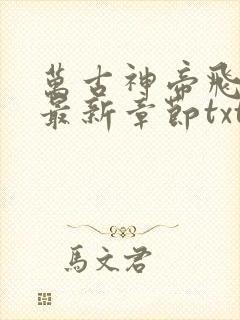 萬古神帝飛
最新章節txt
馬文君